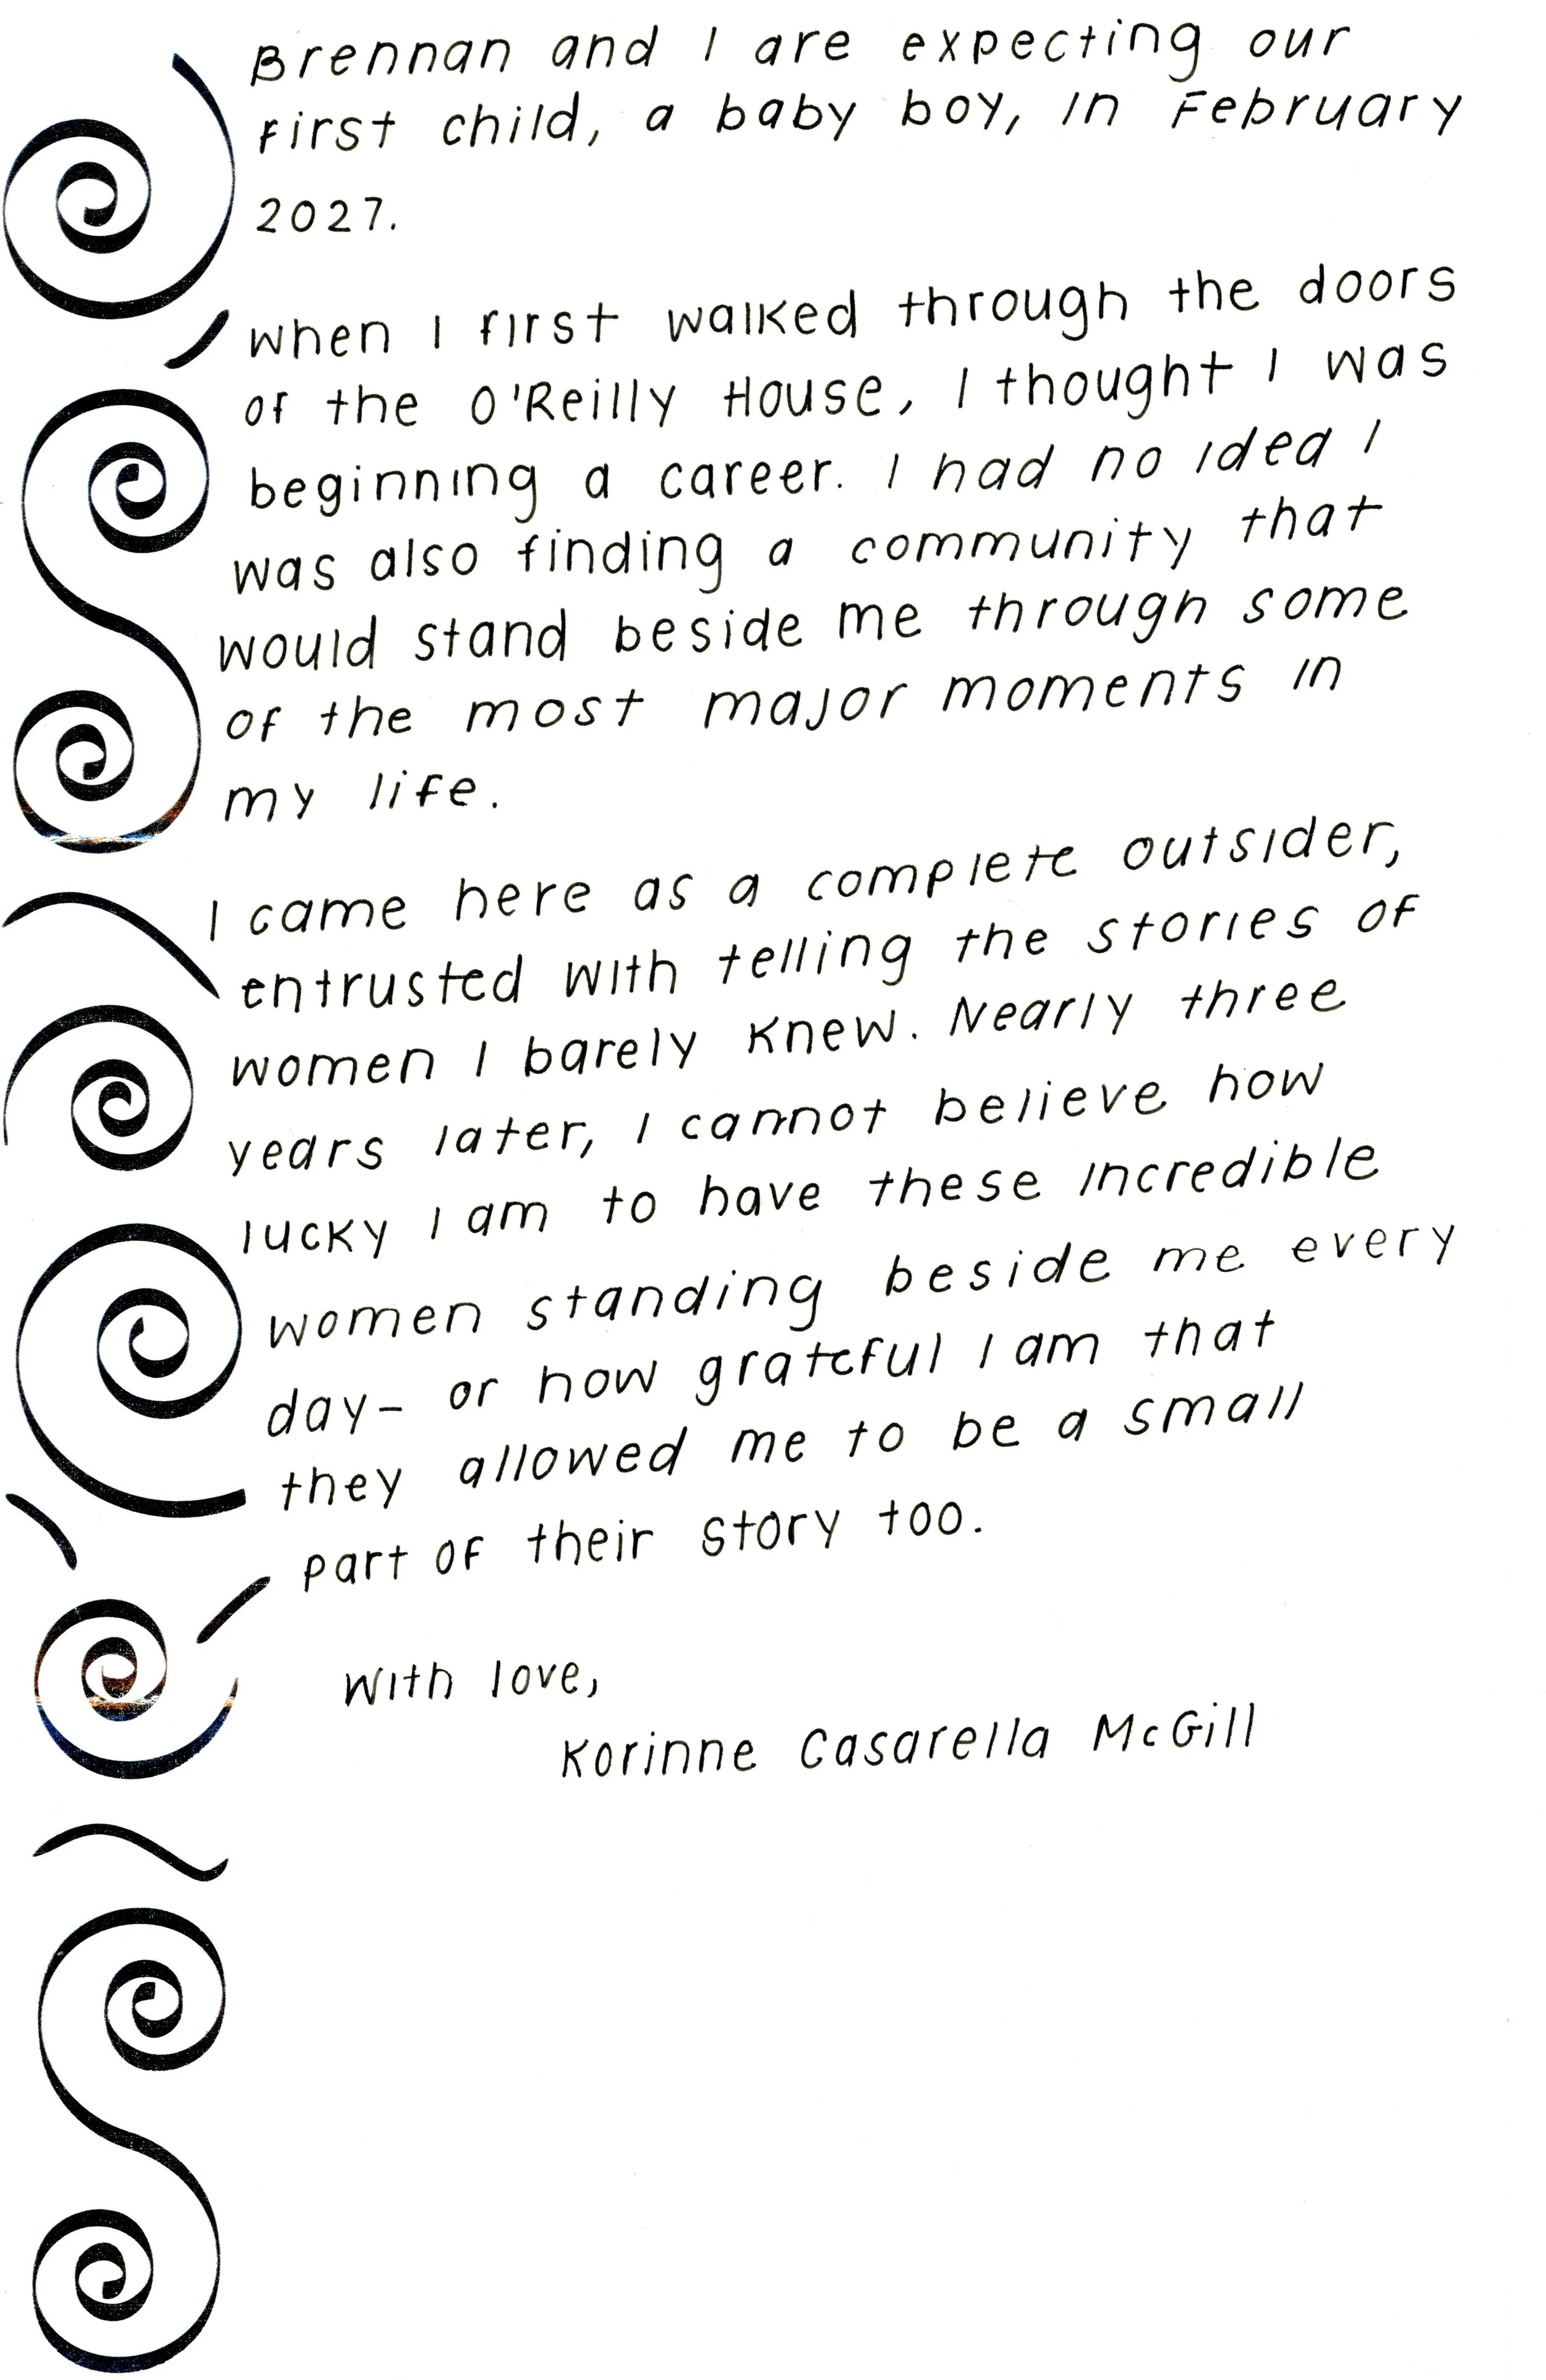 Brennan and I are expecting our
first child, a baby boy, in February
2027.
When I first walked through the doors
of the O'Reilly House, I thought I was
beginning a career. I had no idea I
was also finding a community that
would stand beside me through some
of the most major moments in
my life.
I came here as a complete outsider,
entrusted with telling the stories of
women I barely knew. Nearly three
years later, I cannot believe how
lucky I am to have these incredible
women standing beside me every
day- or how grateful I am that
they allowed me to be a small
part of their story too.
With love,
Korinne Casarella McGill